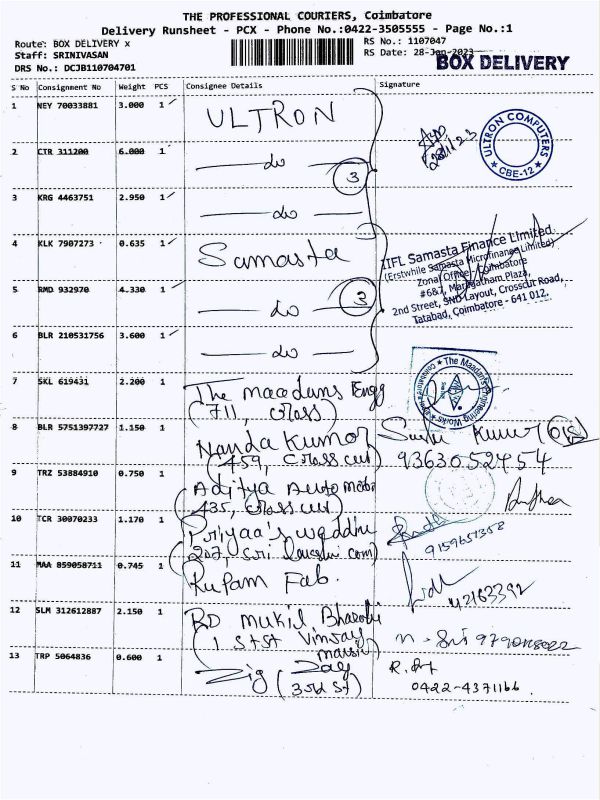 THE PROFESSIONAL COURIERS, Coimbatore
Delivery Runsheet - PCX - Phone No.:0422-3505555 - Page No.:1
Route: BOX DELIVERY x
RS No.: 1107047
Staff: SRINIVASAN
RS Date: 28-Jan-2023
BOX DELIVERY
DRS No.: DCJB110704701
S No Consignment No Weight PCS Consignee Details Signature
1 NEY 70033881 3.000 1 ULTRON
ULTRON COMPUTERS
CBE-12
2 CTR 311200 6.000 1 do
3
3 KRG 4463751 2.950 1 do
4 KLK 7907273 0.635 1 Samasta
IIFL Samasta Finance Limited
(Erstwhile Samasta Microfinance Limited)
Zonal Office - Coimbatore
#6&7, Maragatham Plaza,
2nd Street, SND Layout, Crosscut Road,
Tatabad, Coimbatore - 641 012.
5 RMD 932970 4.330 1 do
3
6 BLR 210531756 3.600 1 do
7 SKL 619431 2.200 1 The maadans Engg
(711, cross)
8 BLR 5751397727 1.150 1 Nanda Kumar
(459, cross cut)
9363052454
9 TRZ 53884910 0.750 1 Aditya Automobi
(435, cross cut)
10 TCR 30070233 1.170 1 Priyaa's
9159651358
11 MAA 859058711 0.745 1 Rupam Fab.
42163392
12 SLM 312612887 2.150 1 RD mukil
13 TRP 5064836 0.600 1 Zig Zag
(3rd St)
0422-4371166